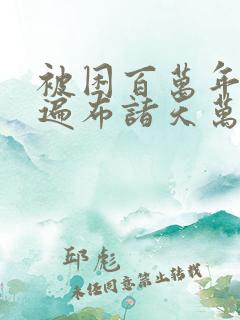 被困百萬年
遍布諸天萬
邱彪
未經同意禁止轉載